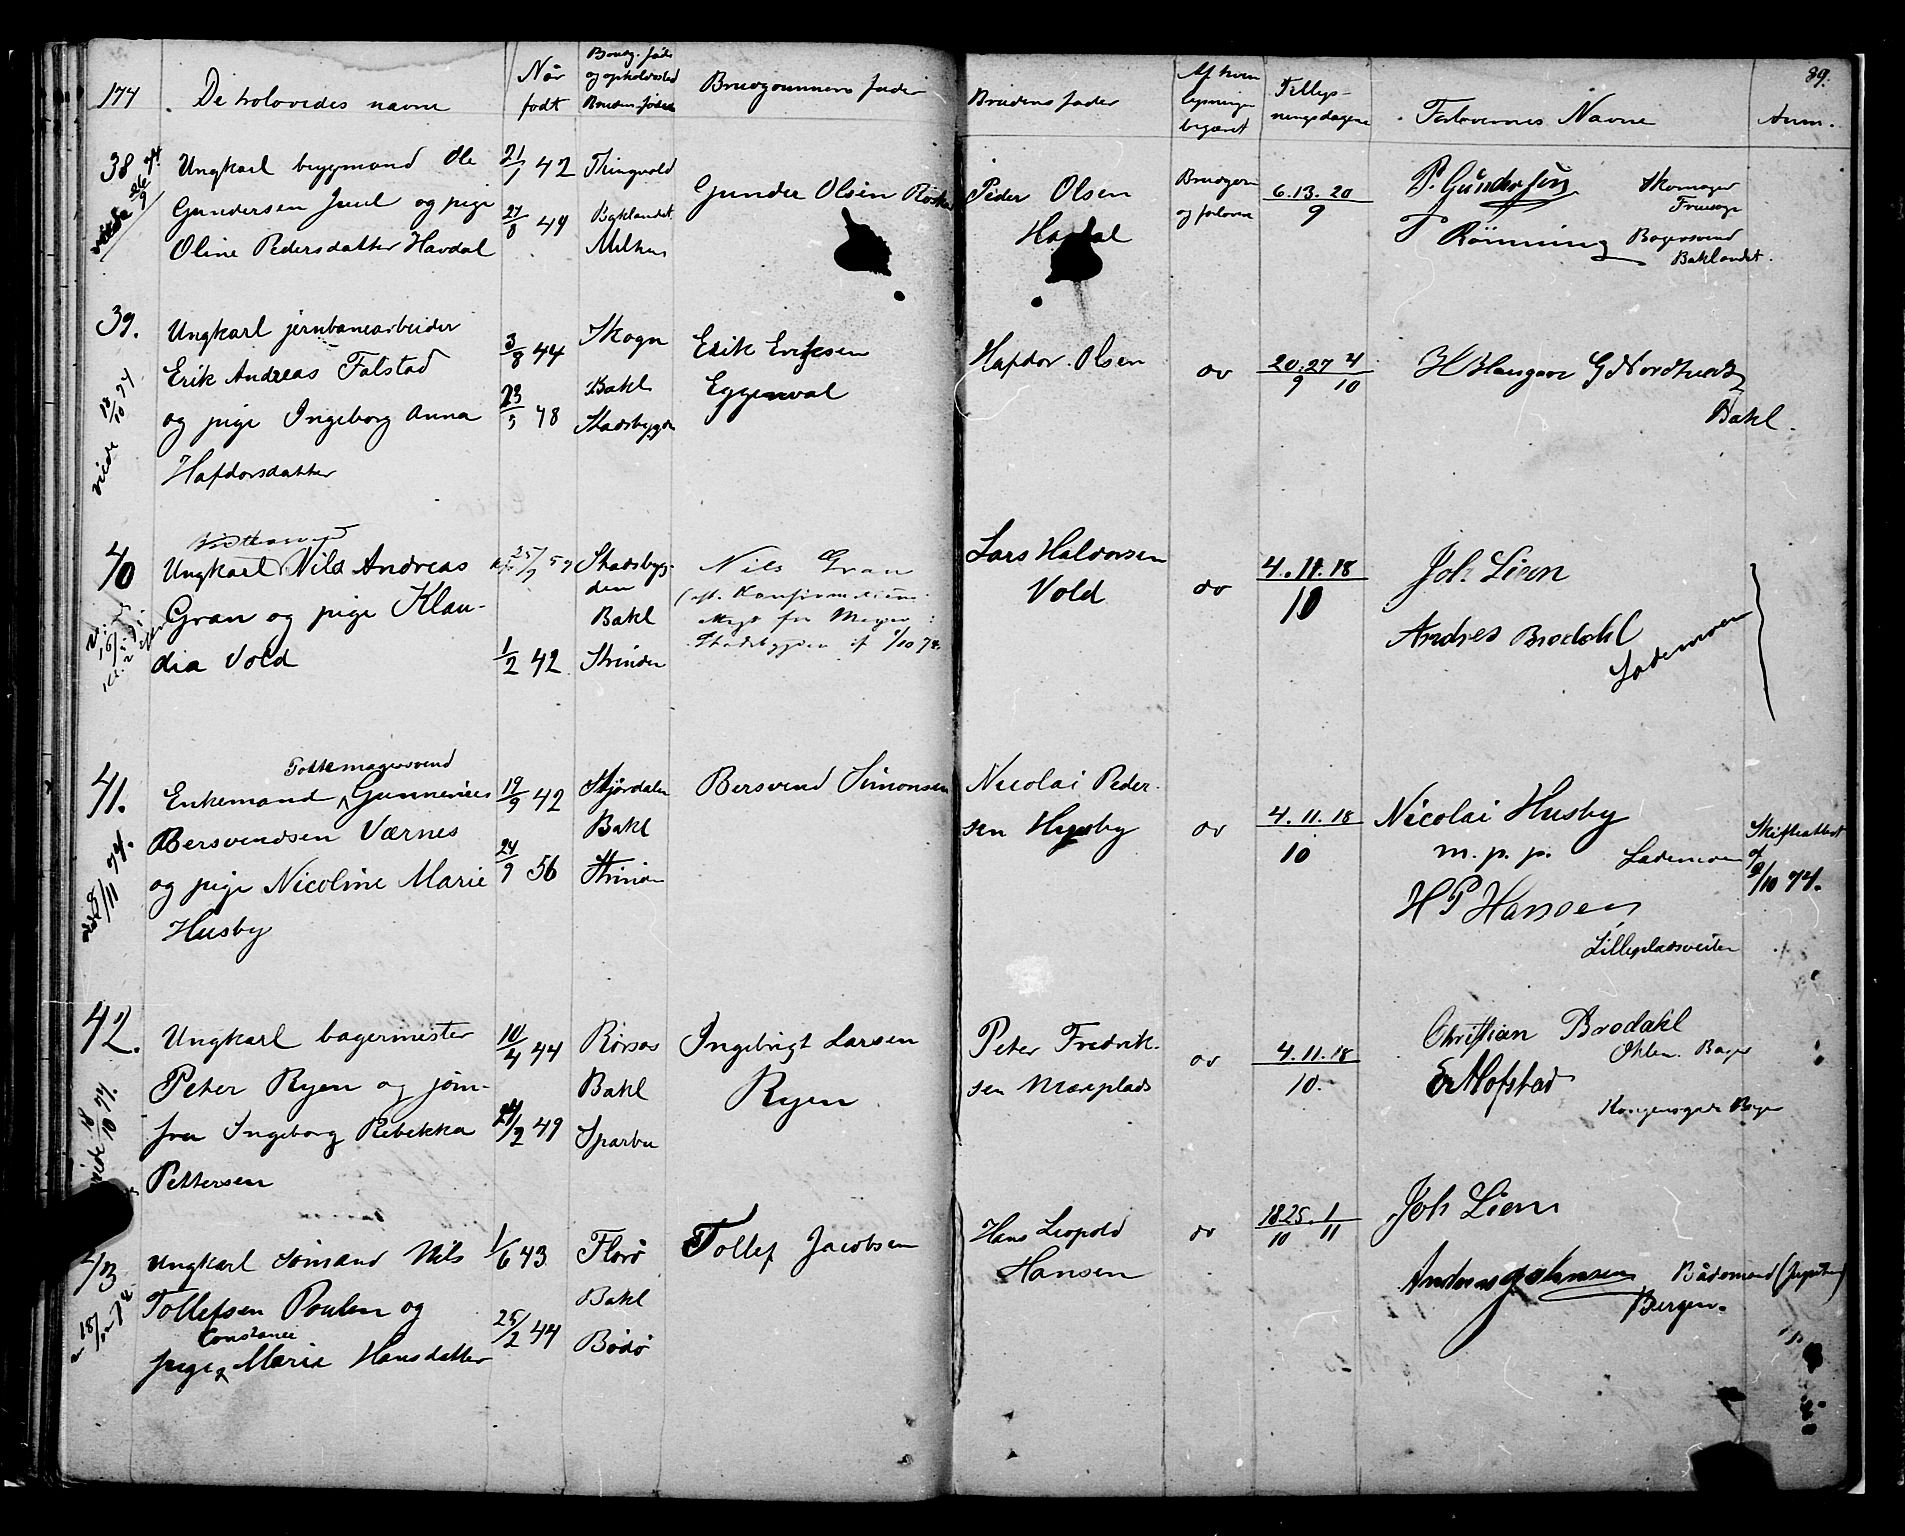 174
De trolovedes navne
Når
født
Brudg. føde
og opholdssted
Brudens føde
Brudgommens fader
Brudens fader
Af hvem
lysningen
begæret
Tillys-
ningsdagene
Forlovernes Navne
Anm.
89.
38
viede 26/9 74.
Ungkarl byggmand Ole
Gundersen Juul og pige
Oline Pedersdatter Havdal
21/1 42
27/8 49
Thingvold
Baklandet
Melhus
Gunder Olsen
Peder Olsen
Havdal
Brudgom
og forlover
6.13.20
9
P. Gundersen Skomager
Rönning Bagersvend
Baklandet.
39.
viede 18/10 74
Ungkarl jernbanearbeider
Erik Andreas Falstad
og pige Ingeborg Anna
Hafdorsdatter
3/8 44
23/5 48
Skogn
Bakl
Stadsbygden
Erik Eriksen
Eggenval
Hafdor Olsen
do
20.27 4
9 10
Bakl.
40
Ungkarl Nils Andreas
Gran og pige Klau-
dia Vold
1/2 42
Stadsbyg-
den
Bakl
Strinden
Nils Gran
Stadsbygden
Lars Haldorsen
Vold
do
4.11.18
10
Joh Lien
Andres Brodahl
Lademoen
41.
8/11 74.
Enkemand Gunnerius
Bersvendsen Værnes
og pige Nicoline Marie
Husby
19/9 42
24/9 56
Stjørdalen
Bakl
Strinden
Bersvend Simonsen
Nicolai Peder-
sen Husby
do
4.11.18
10
Nicolai Husby
m. p. p. Lademoen
H P Hansen
Lillepladsveiten
Skifteattest
af
2/10 74.
42.
viede 18/10 74.
Ungkarl bagermester
Peter Ryen og jom-
fru Ingeborg Rebekka
Pettersen
10/4 44
2 49
Røraas
Bakl
Sparbu
Ingebrigt Larsen
Ryen
Peter Fredrik-
sen Mæreplads
do
4.11.18
10.
Christian Brodahl
Bager
Hofstad
Kongensgade Bager
43
Ungkarl sømand Nils
Tollefsen Poulsen og
Constance
pige Marie Hansdatter
1/6 43
25/2 44
Florø
Bakl
Bodø
Tollef Jacobsen
Hans Leopold
Hansen
do
18 25. 1
10 11
Joh Lien
Andreas Johnsen Bådsmand
Bergen.